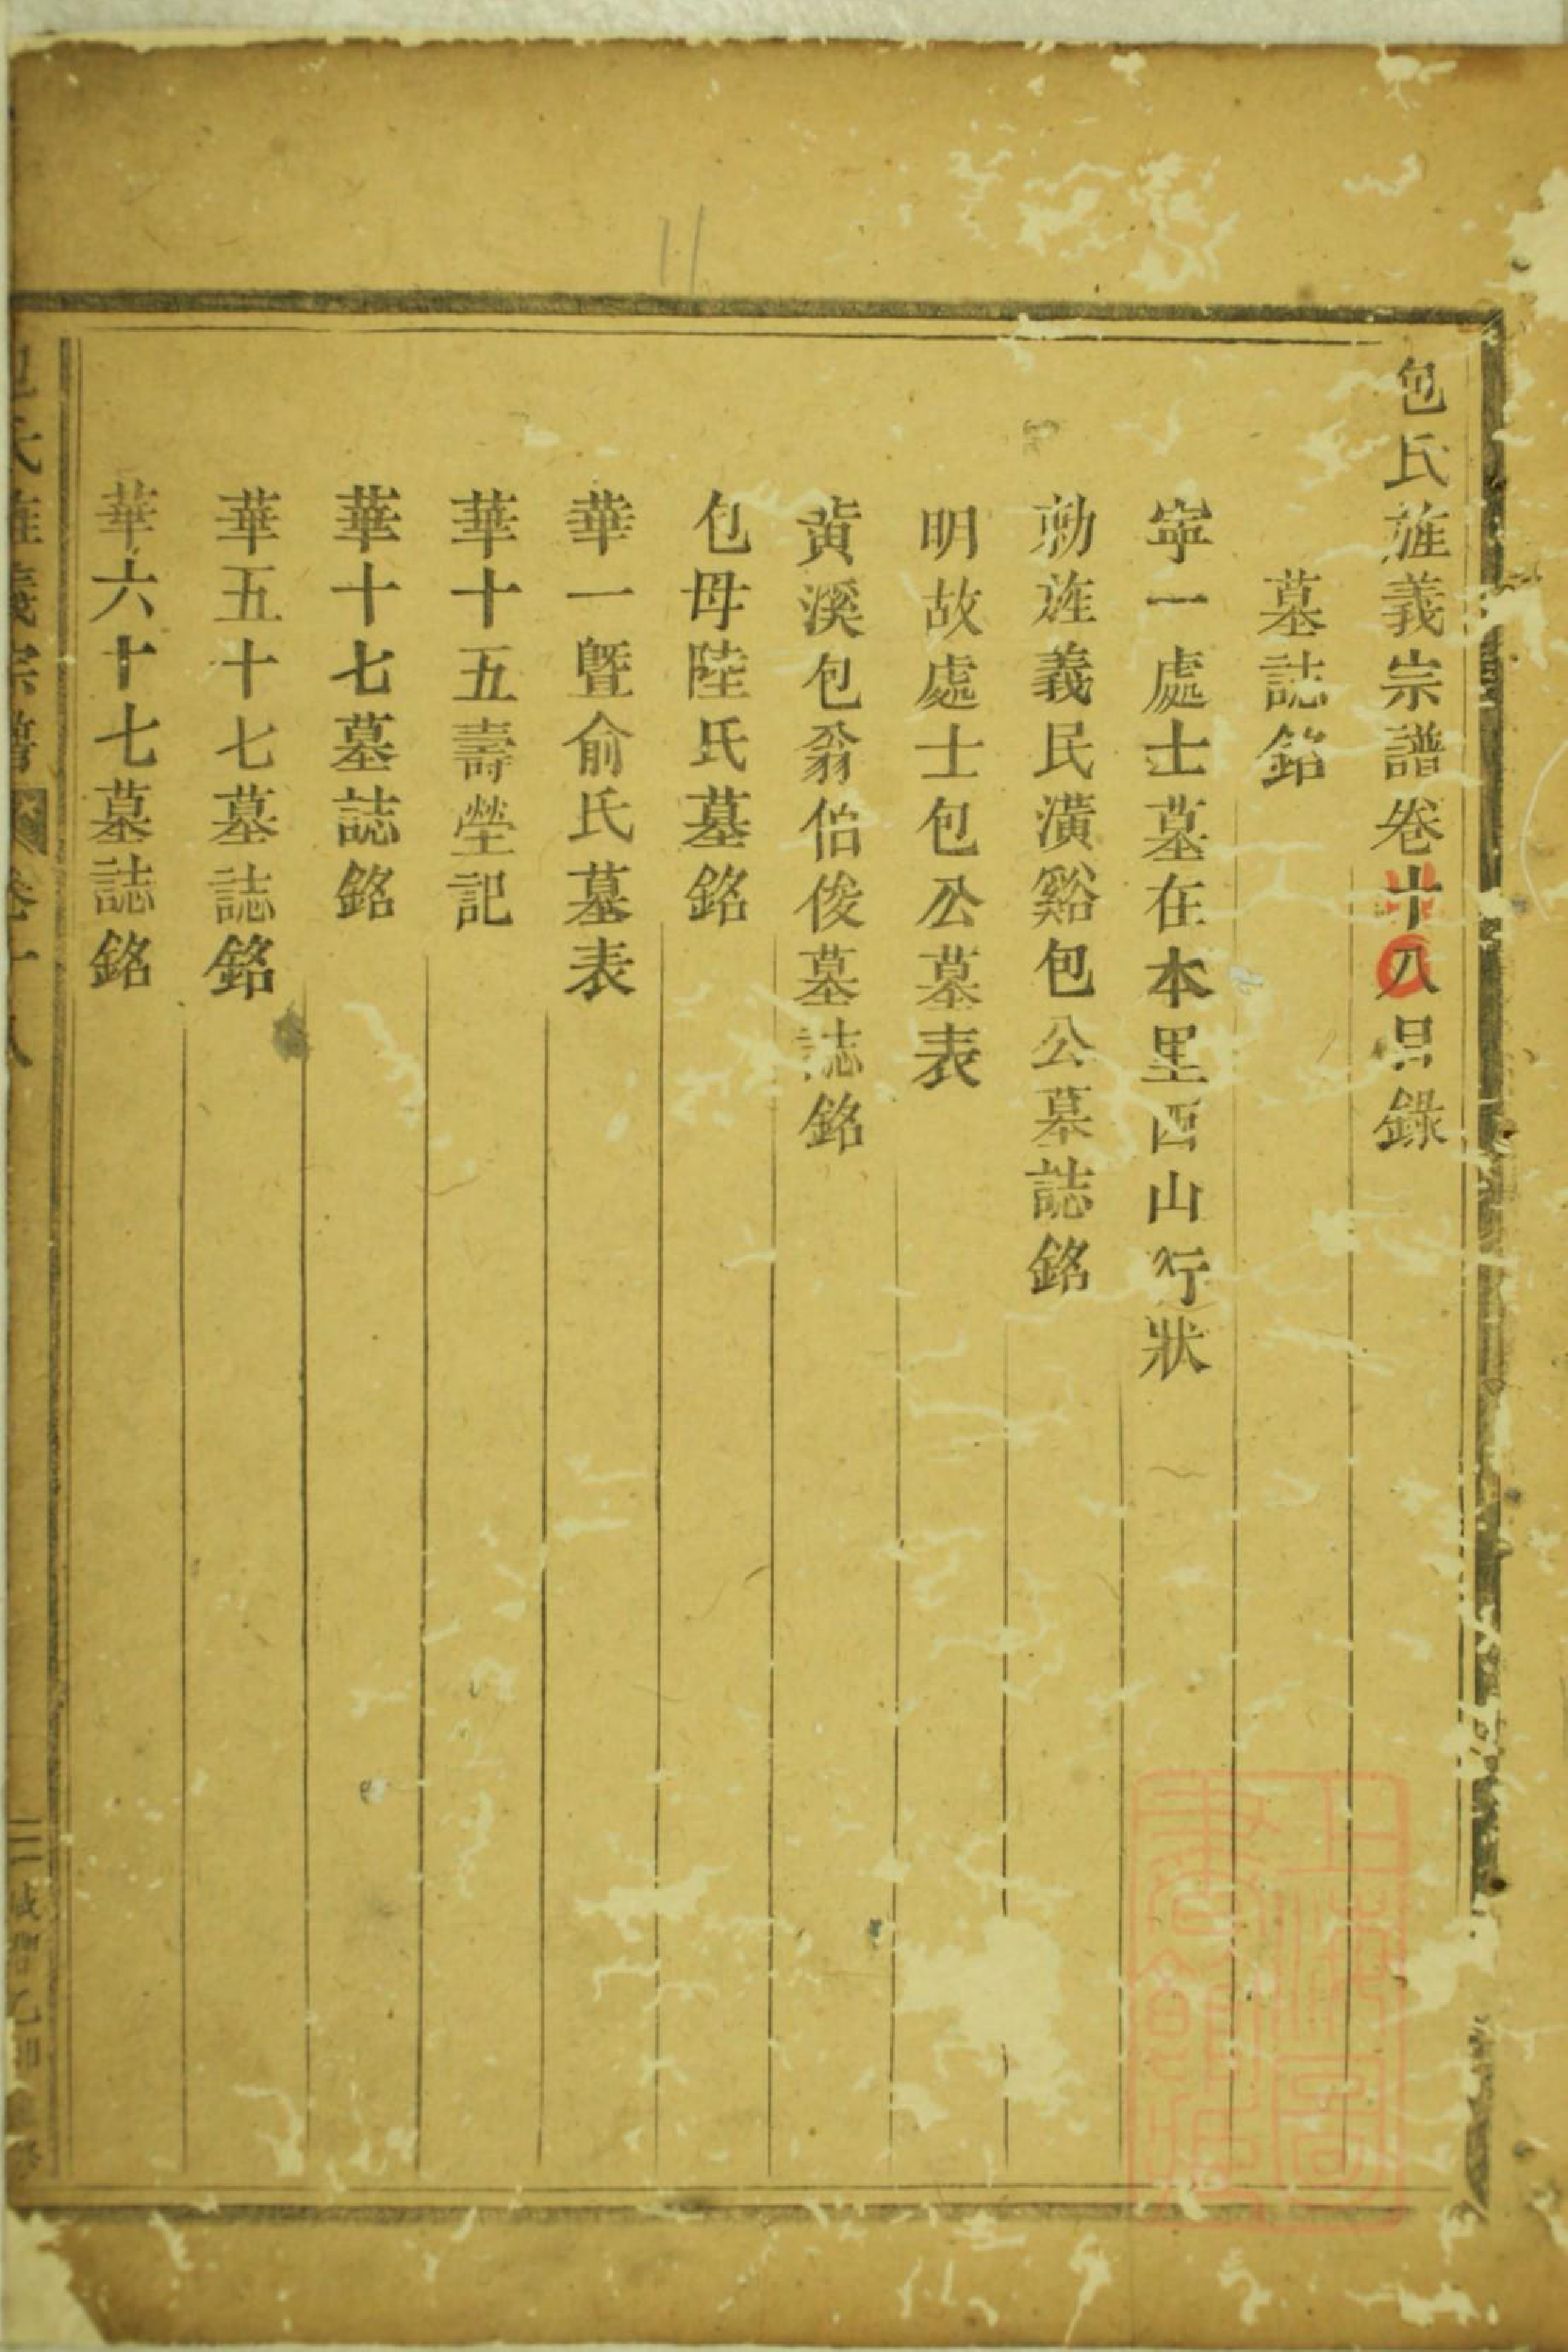 包氏旌義宗譜卷十八目錄
墓誌銘
寧一處士墓在本里西山行狀
勅旌義民潢谿包公墓誌銘
明故處士包公墓表
黄溪包翁伯俊墓誌銘
包母陸氏墓銘
華一暨俞氏墓表
華十五壽塋記
華十七墓誌銘
華五十七墓誌銘
華六十七墓誌銘
包氏旌義宗譜 卷十八
上海圖書館藏